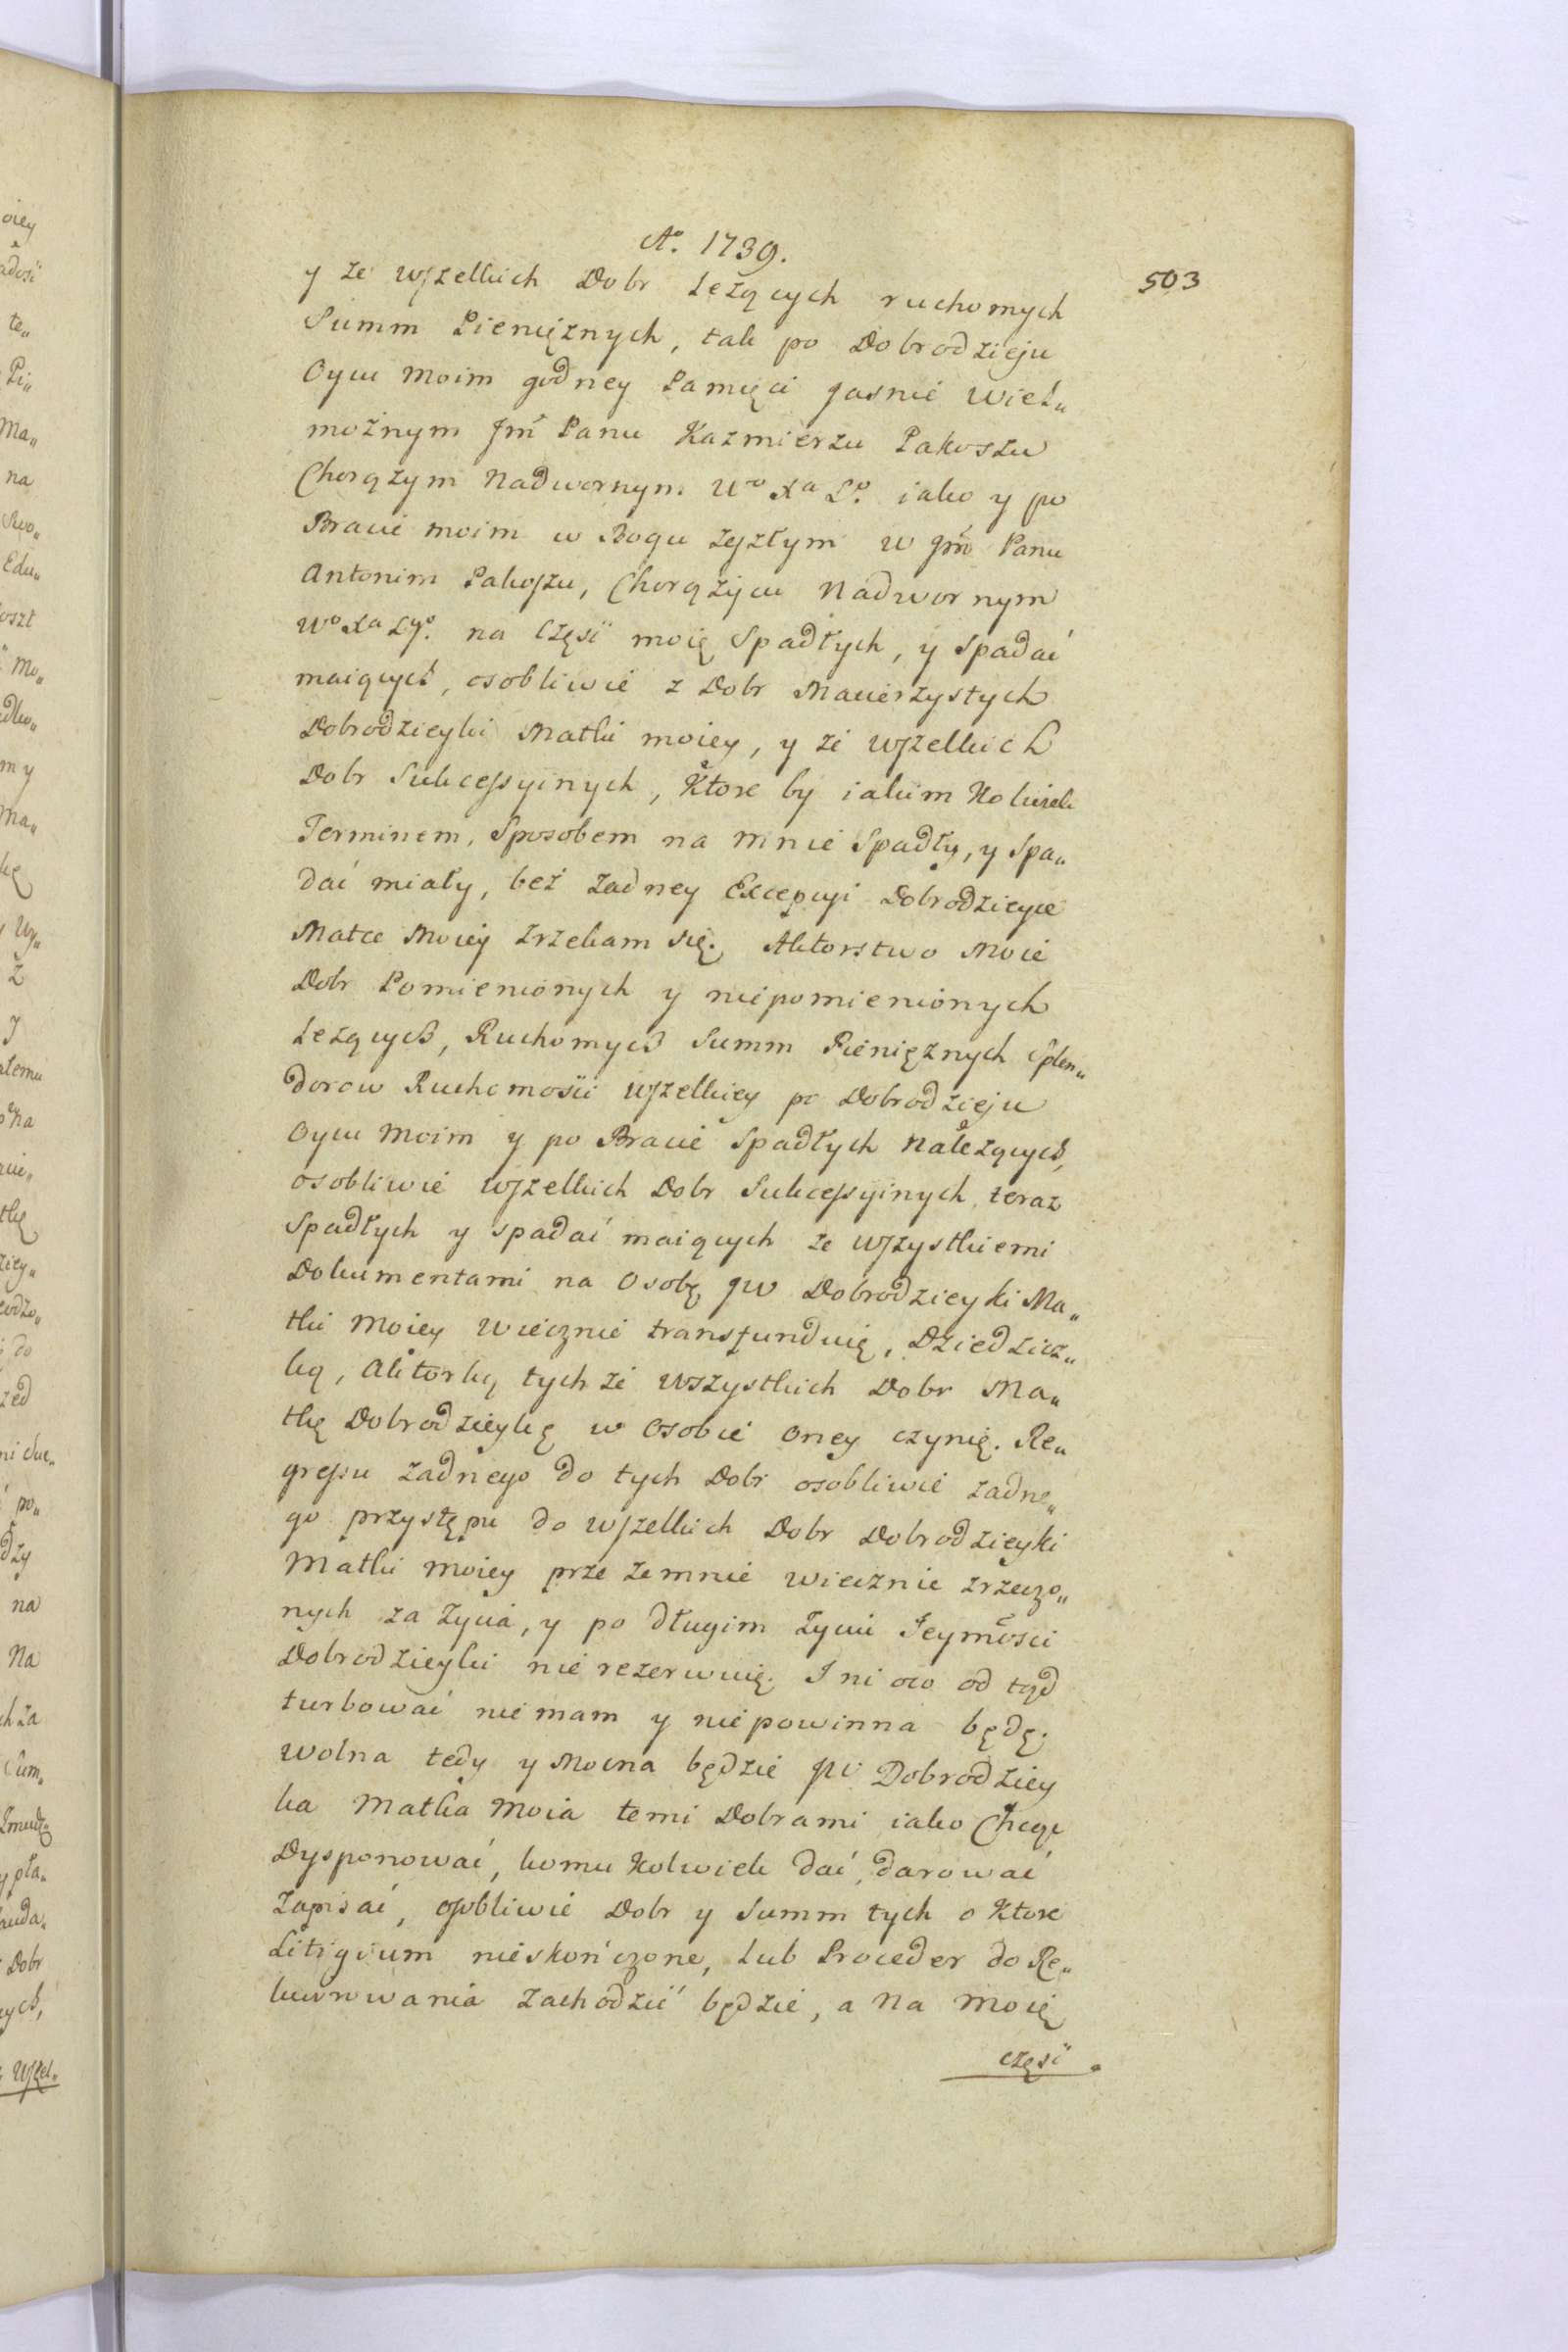 Aº. 1739.
503
y ze wszelkich Dobr Leżących ruchomych
Summ Pieniężnych, tak po Dobrodzieju
Oycu Moim godney Pamięci Jasnie Wiel„
możnym Jm̃ Panu Kazmierzu Pakoszu
Chorążym Nadwornym Wº Xa Lº. iako y po
Bracie moim w Bogu zeszłym W Jm̃ Panu
Antonim Pakoszu, Chorążycu Nadwornym
Wº Xa Lgº. na Częsć moię Spadłych, y Spadać
maiących, osobliwie z Dobr Macierzystych
Dobrodzieyki Matki moiey, y ze wszelkich
Dobr Sukcessyinych, Ktore by iakim Kolwiek
Terminem, Sposobem na mnie Spadły, y Spa„
dać miały, beż żadney Excepcyi Dobrodzieyce
Matce Moiey zrzekam się. Aktorstwo Moie
Dobr Pomienionych y niepomienionych
Leżących, Ruchomych Summ Pieniężnych Splen„
dorow Ruchomosci wszelkiey po Dobrodzieju
Oycu Moim y po Bracie Spadłych Należących,
osobliwie wszelkich Dobr Sukcessyinych teraz
Spadłych y spadać maiących ze wszystkiemi
Dokumentami na Osobę JW Dobrodzieyki Ma„
tki Moiey Wiecznie transfunduię, Dziedzicz„
ką, Aktorką tych że wszystkich Dobr Ma„
tkę Dobrodzieykę w Osobie oney czynię. Re„
gressu żadnego do tych Dobr osobliwie żadne„
go przystępu do wszelkich Dobr Dobrodzieyki
Matki Moiey przezemnie wiecznie zrzeczo„
nych za życia, y po długim życiu Jeymości
Dobrodzieyki nie rezerwuię. I ni oco od tąd
turbować nie mam y nie powinna będę.
Wolna tedy y Mocna będzie JW Dobrodziey
ka Matka Moia temi Dobrami iako Chcąc
Dysponować, komu Kolwiek dać, darować
Zapisać, osobliwie Dobr y Summ tych o Ktore
Litigium nieskończone, lub Proceder do Re„
kuwrowania zachodzić będzie, a Na Moię
częsć